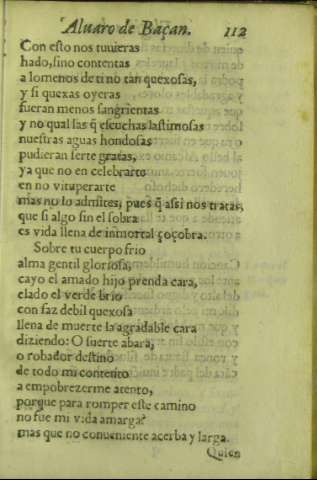 Aluaro de Baçan. 112
Con esto nos tuuieras
hado, sino contentas
a lo menos de ti no tan quexosas,
y si quexas oyeras
fueran menos sangrientas
y no qual las q̃ escuchas lastimosas
nuestras aguas hondosas
pudieran serte gratas,
ya que no en celebrarte
en no vituperarte
mas no lo admites, pues q̃ assi nos tratas,
que si algo sin el sobra
es vida llena de inmortal çoçobra.
Sobre tu cuerpo frio
alma gentil gloriosa,
cayo el amado hijo prenda cara,
elado el verde brio
con faz debil quexosa
llena de muerte la agradable cara
diziendo: O suerte abara,
o robador destino
de todo mi contento
a empobrezerme atento,
porque para romper este camino
no fue mi vida amarga?
mas que no conueniente acerba y larga.
Quien